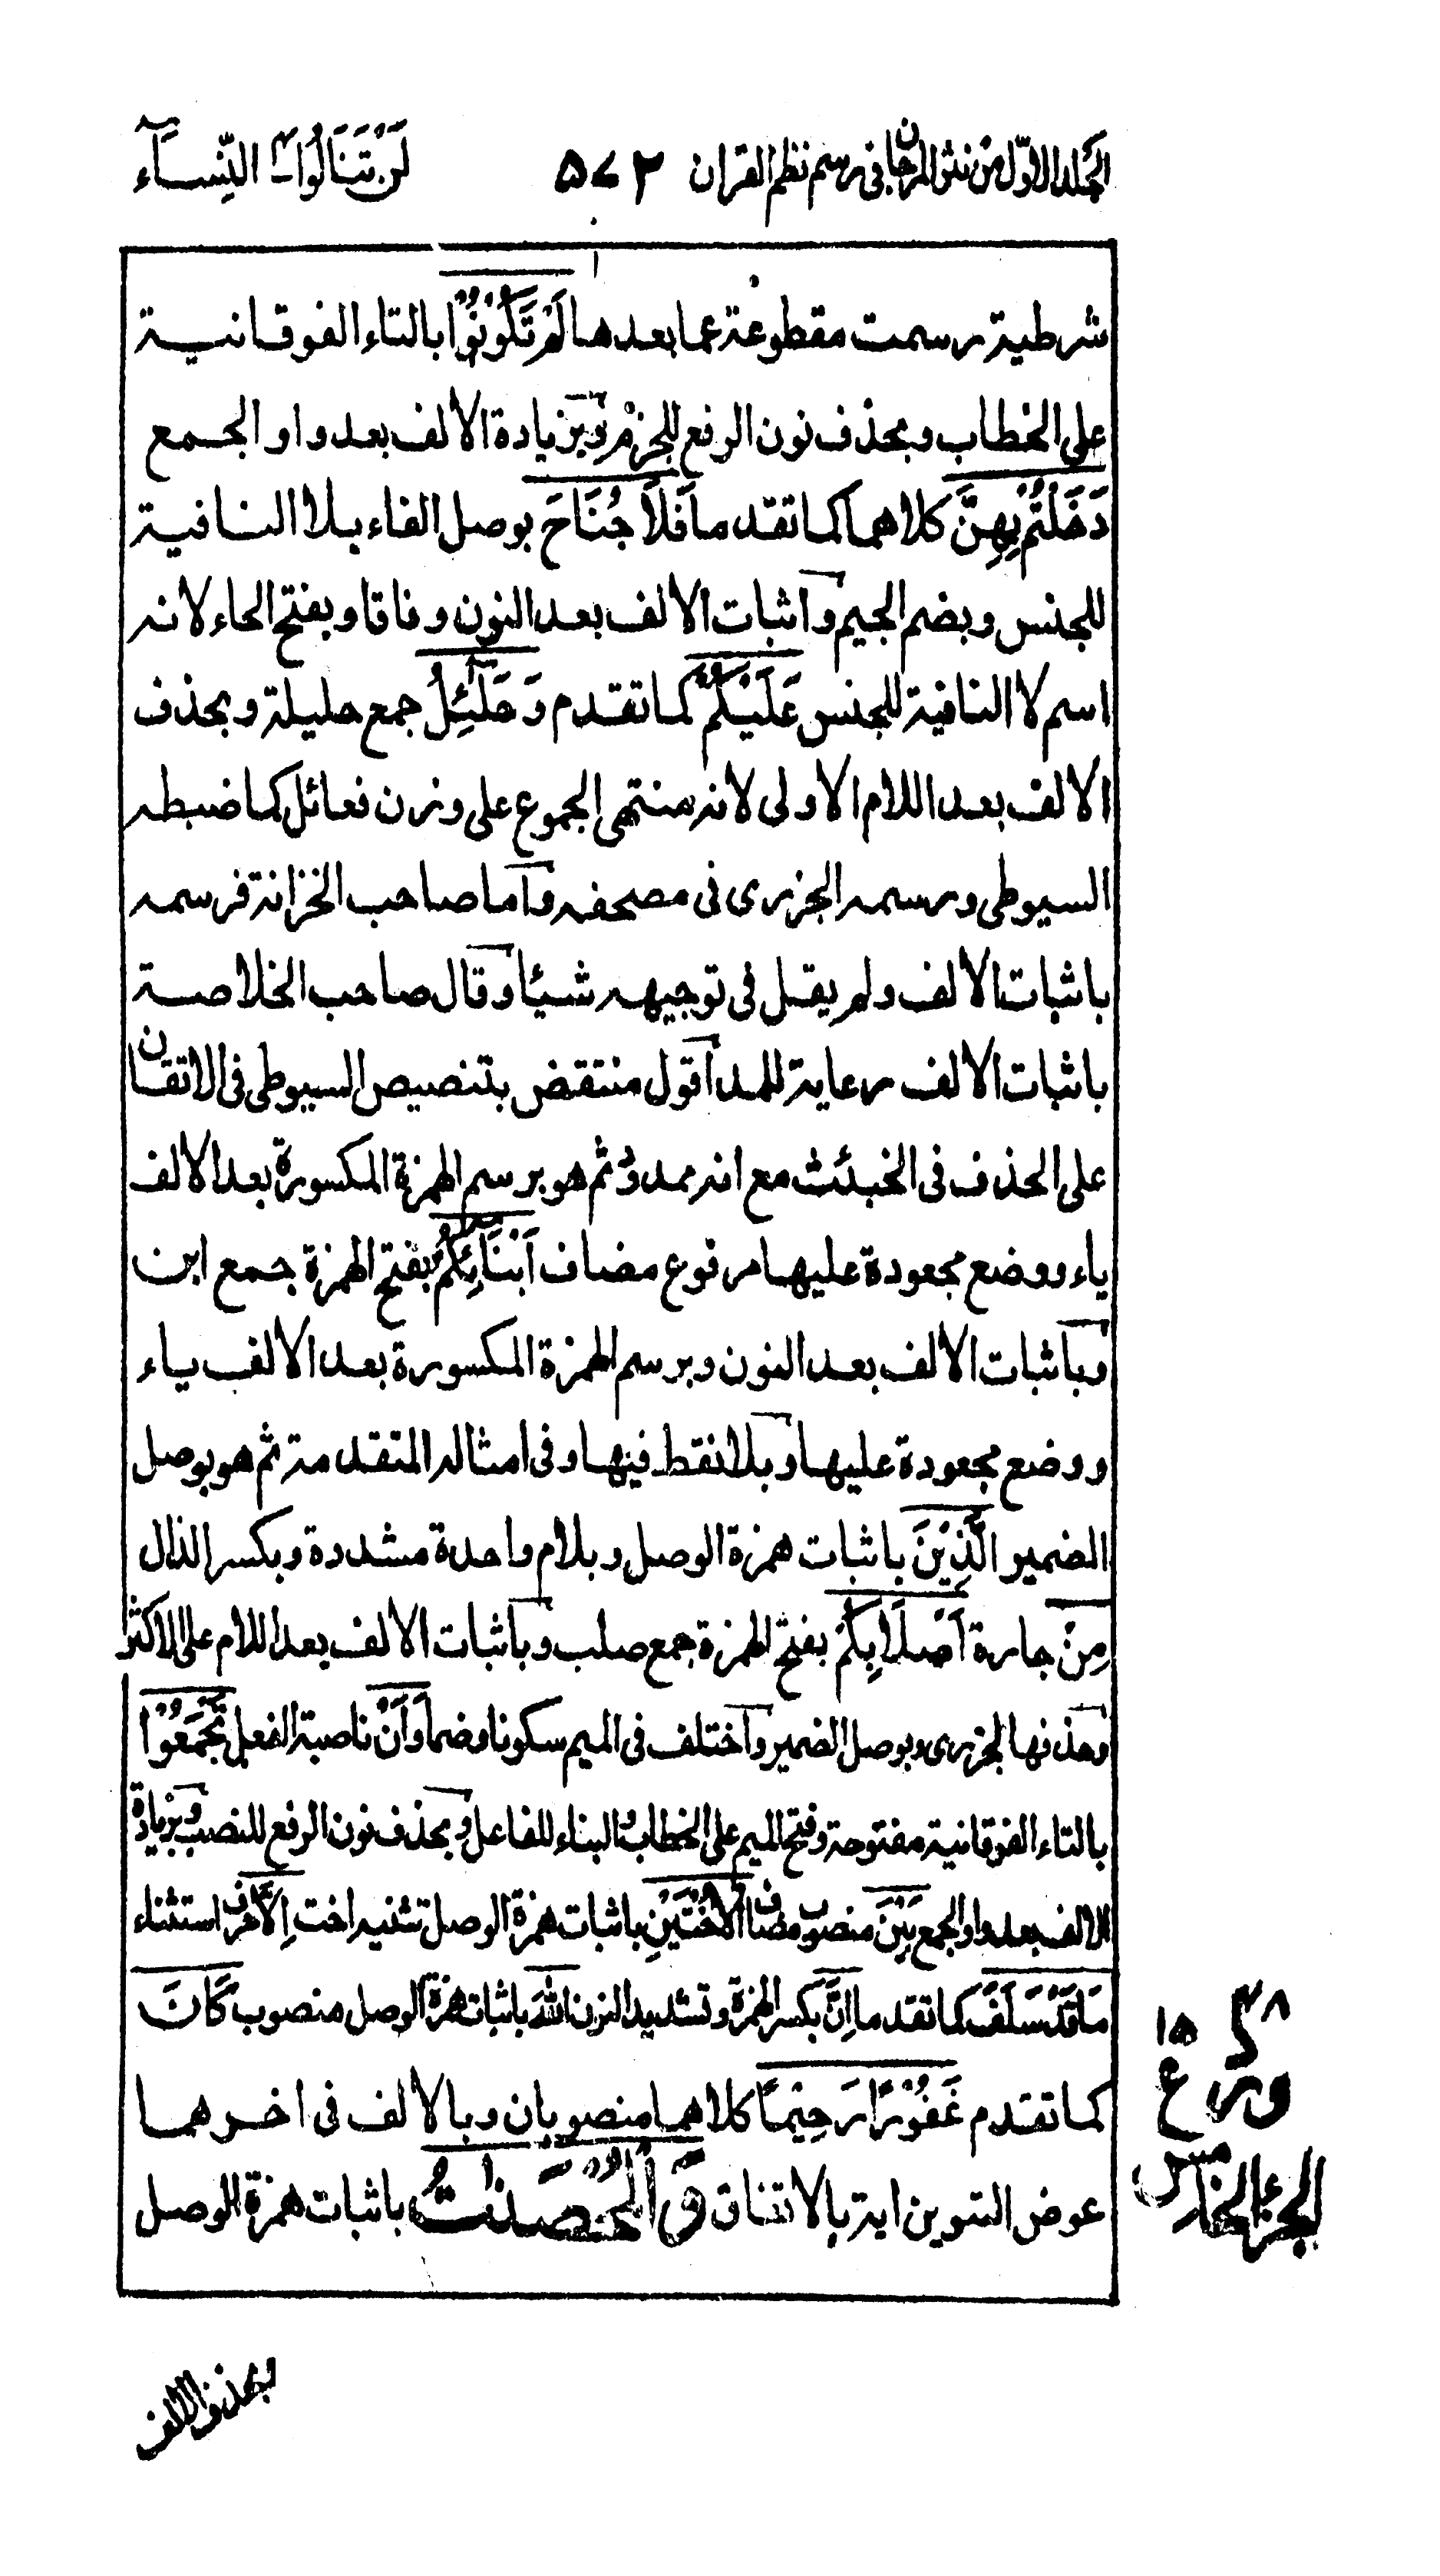 الجلد الاوّل من نثر المرجان فی رسم نظم القران ۵۷۲ لَنْ تَنَالُوا ۴ النِّسَآء
شرطية رسمت مقطوعة عما بعدها لَمْ تَكُوْنُوْا بالتاء الفوقانية
على الخطاب وبحذف نون الرفع للجزم وبزيادة الالف بعد واو الجمع
دَخَلْتُمْ بِهِنَّ كلاهما كما تقدما فَلَا جُنَاحَ بوصل الفاء بلا النافية
للجنس وبضم الجيم واثبات الالف بعد النون وفاقا وبفتح الحاء لانه
اسم لا النافية للجنس عَلَيْكُمْ كما تقدم وَحَلَٰٓئِلُ جمع حليلة وبحذف
الالف بعد اللام الاولى لانه منتهى الجموع على وزن فعائل كما ضبطه
السيوطى ورسمه الجزرى فى مصحفه واما صاحب الخزانة فرسمه
باثبات الالف ولم يقل فى توجيهه شيئا وقال صاحب الخلاصة
باثبات الالف رعاية للمد اقول منتقض بتنصيص السيوطى فى الاتقان
على الحذف فى الخبئث مع انه ممدود ثم هو برسم الهمزة المكسورة بعد الالف
ياء ووضع مجعودة عليها مرفوع مضاف اَبْنَائِكُمْ بفتح الهمزة جمع ابن
وباثبات الالف بعد النون وبرسم الهمزة المكسورة بعد الالف ياء
ووضع مجعودة عليها وبلا نقط فيها وفى امثاله المتقدمة ثم هو بوصل
الضمير الَّذِيْنَ باثبات همزة الوصل وبلام واحدة مشددة وبكسر الذال
مِنْ جارة اَصْلَابِكُمْ بفتح الهمزة جمع صلب وباثبات الالف بعد اللام على الاكثر
وحذفها الجزرى وبوصل الضمير واختلف فى الميم سكونا وضما وَاَنْ ناصبة الفعل تَجْمَعُوْا
بالتاء الفوقانية مفتوحة وفتح الميم على الخطاب والبناء للفاعل وبحذف نون الرفع للنصب وبزيادة
الالف بعد واو الجمع بَيْنَ منصوب مضاف الْاُخْتَيْنِ باثبات همزة الوصل تثنية اخت اِلَّا حرف استثناء
مَا قَدْ سَلَفَ كما تقدما اِنَّ بكسر الهمزة وتشديد النون اللّٰهَ باثبات همزة الوصل منصوب كَانَ
كما تقدم غَفُوْرًا رَحِيْمًا كلاهما منصوبان وبالالف فى اخرهما
عوض التنوين اية بالاتفاق وَّالْمُحْصَنٰتُ باثبات همزة الوصل
۱۵ ع
الجزء الخامس
بحذف الالف